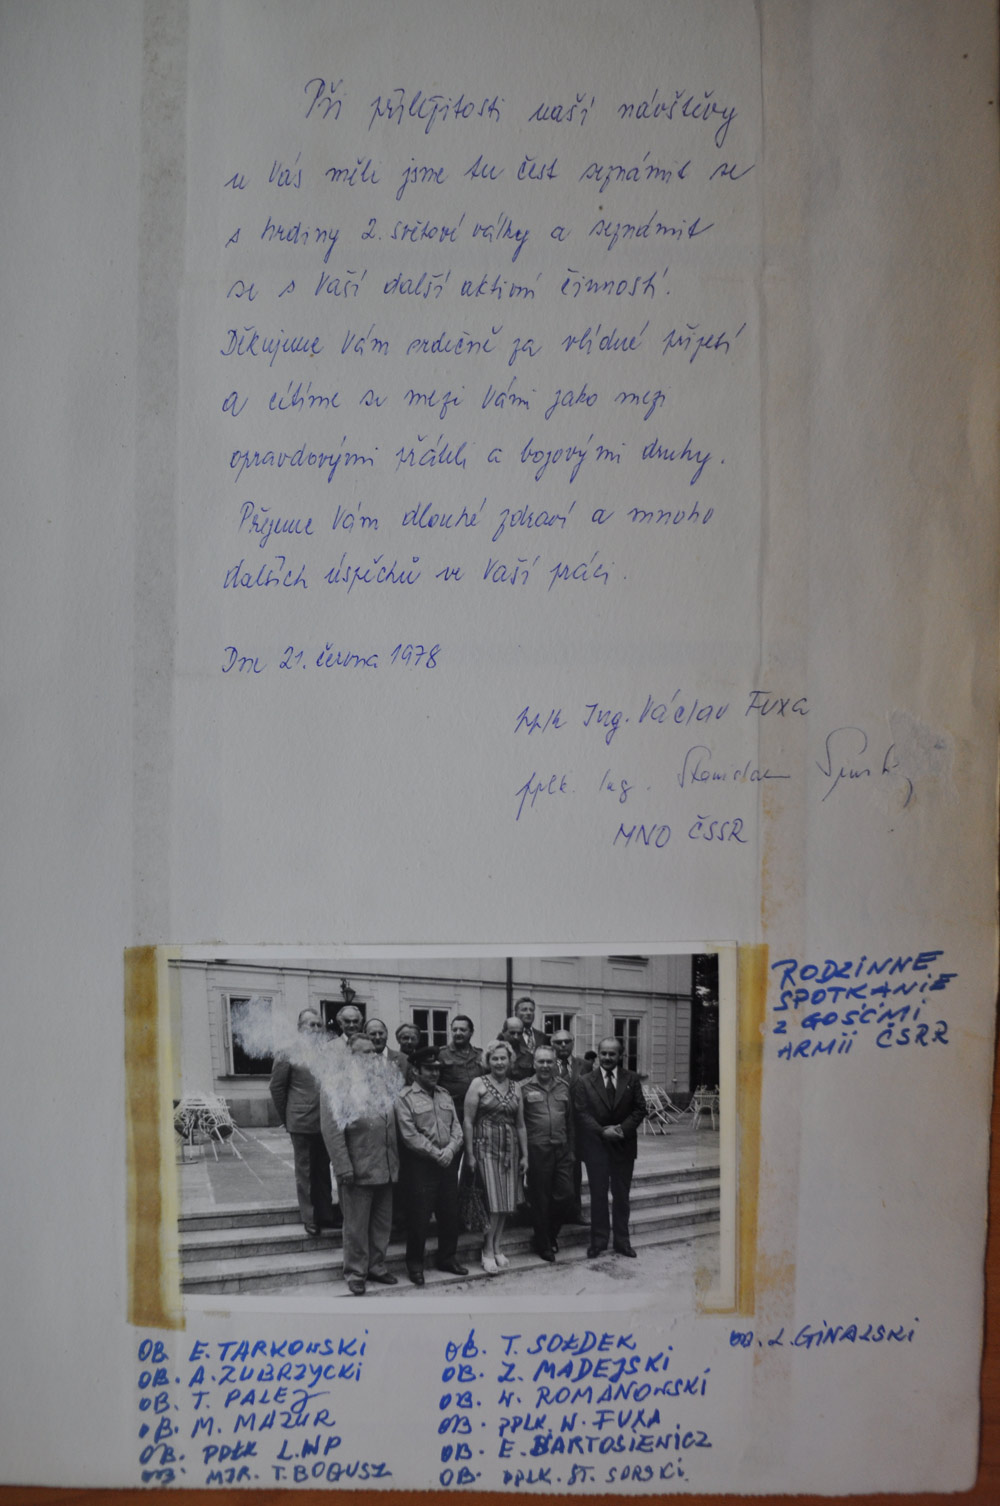 Při příležitosti naší návštěvy
u Vás měli jsme tu čest seznámit se
s hrdiny 2. světové války a seznámit
se s Vaší další aktivní činností.
Děkujeme Vám srdečně za vlídné přijetí
a cítíme se mezi Vámi jako mezi
opravdovými přáteli a bojovými druhy.
Přejeme Vám dlouhé zdraví a mnoho
dalších úspěchů ve Vaší práci.
Dne 21. června 1978
pplk Ing. Václav Fuxa
pplk. Ing. Stanislav
MNO ČSSR
RODZINNE
SPOTKANIE
Z GOŚĆMI
ARMII ČSRR
OB. E. TARKOWSKI
OB. A. ZUBRZYCKI
OB. T. PALEJ
OB. M. MAZUR
OB. PPŁK L.WP
OB. MJR. T. BOGUSZ
OB. T. SOŁDEK
OB. Z. MADEJSKI
OB. W. ROMANOWSKI
OB. PPLK. W. FUXA
OB. E. BARTOSIEWICZ
OB. PPLK. ST. SORSKI
OB. L. GINALSKI